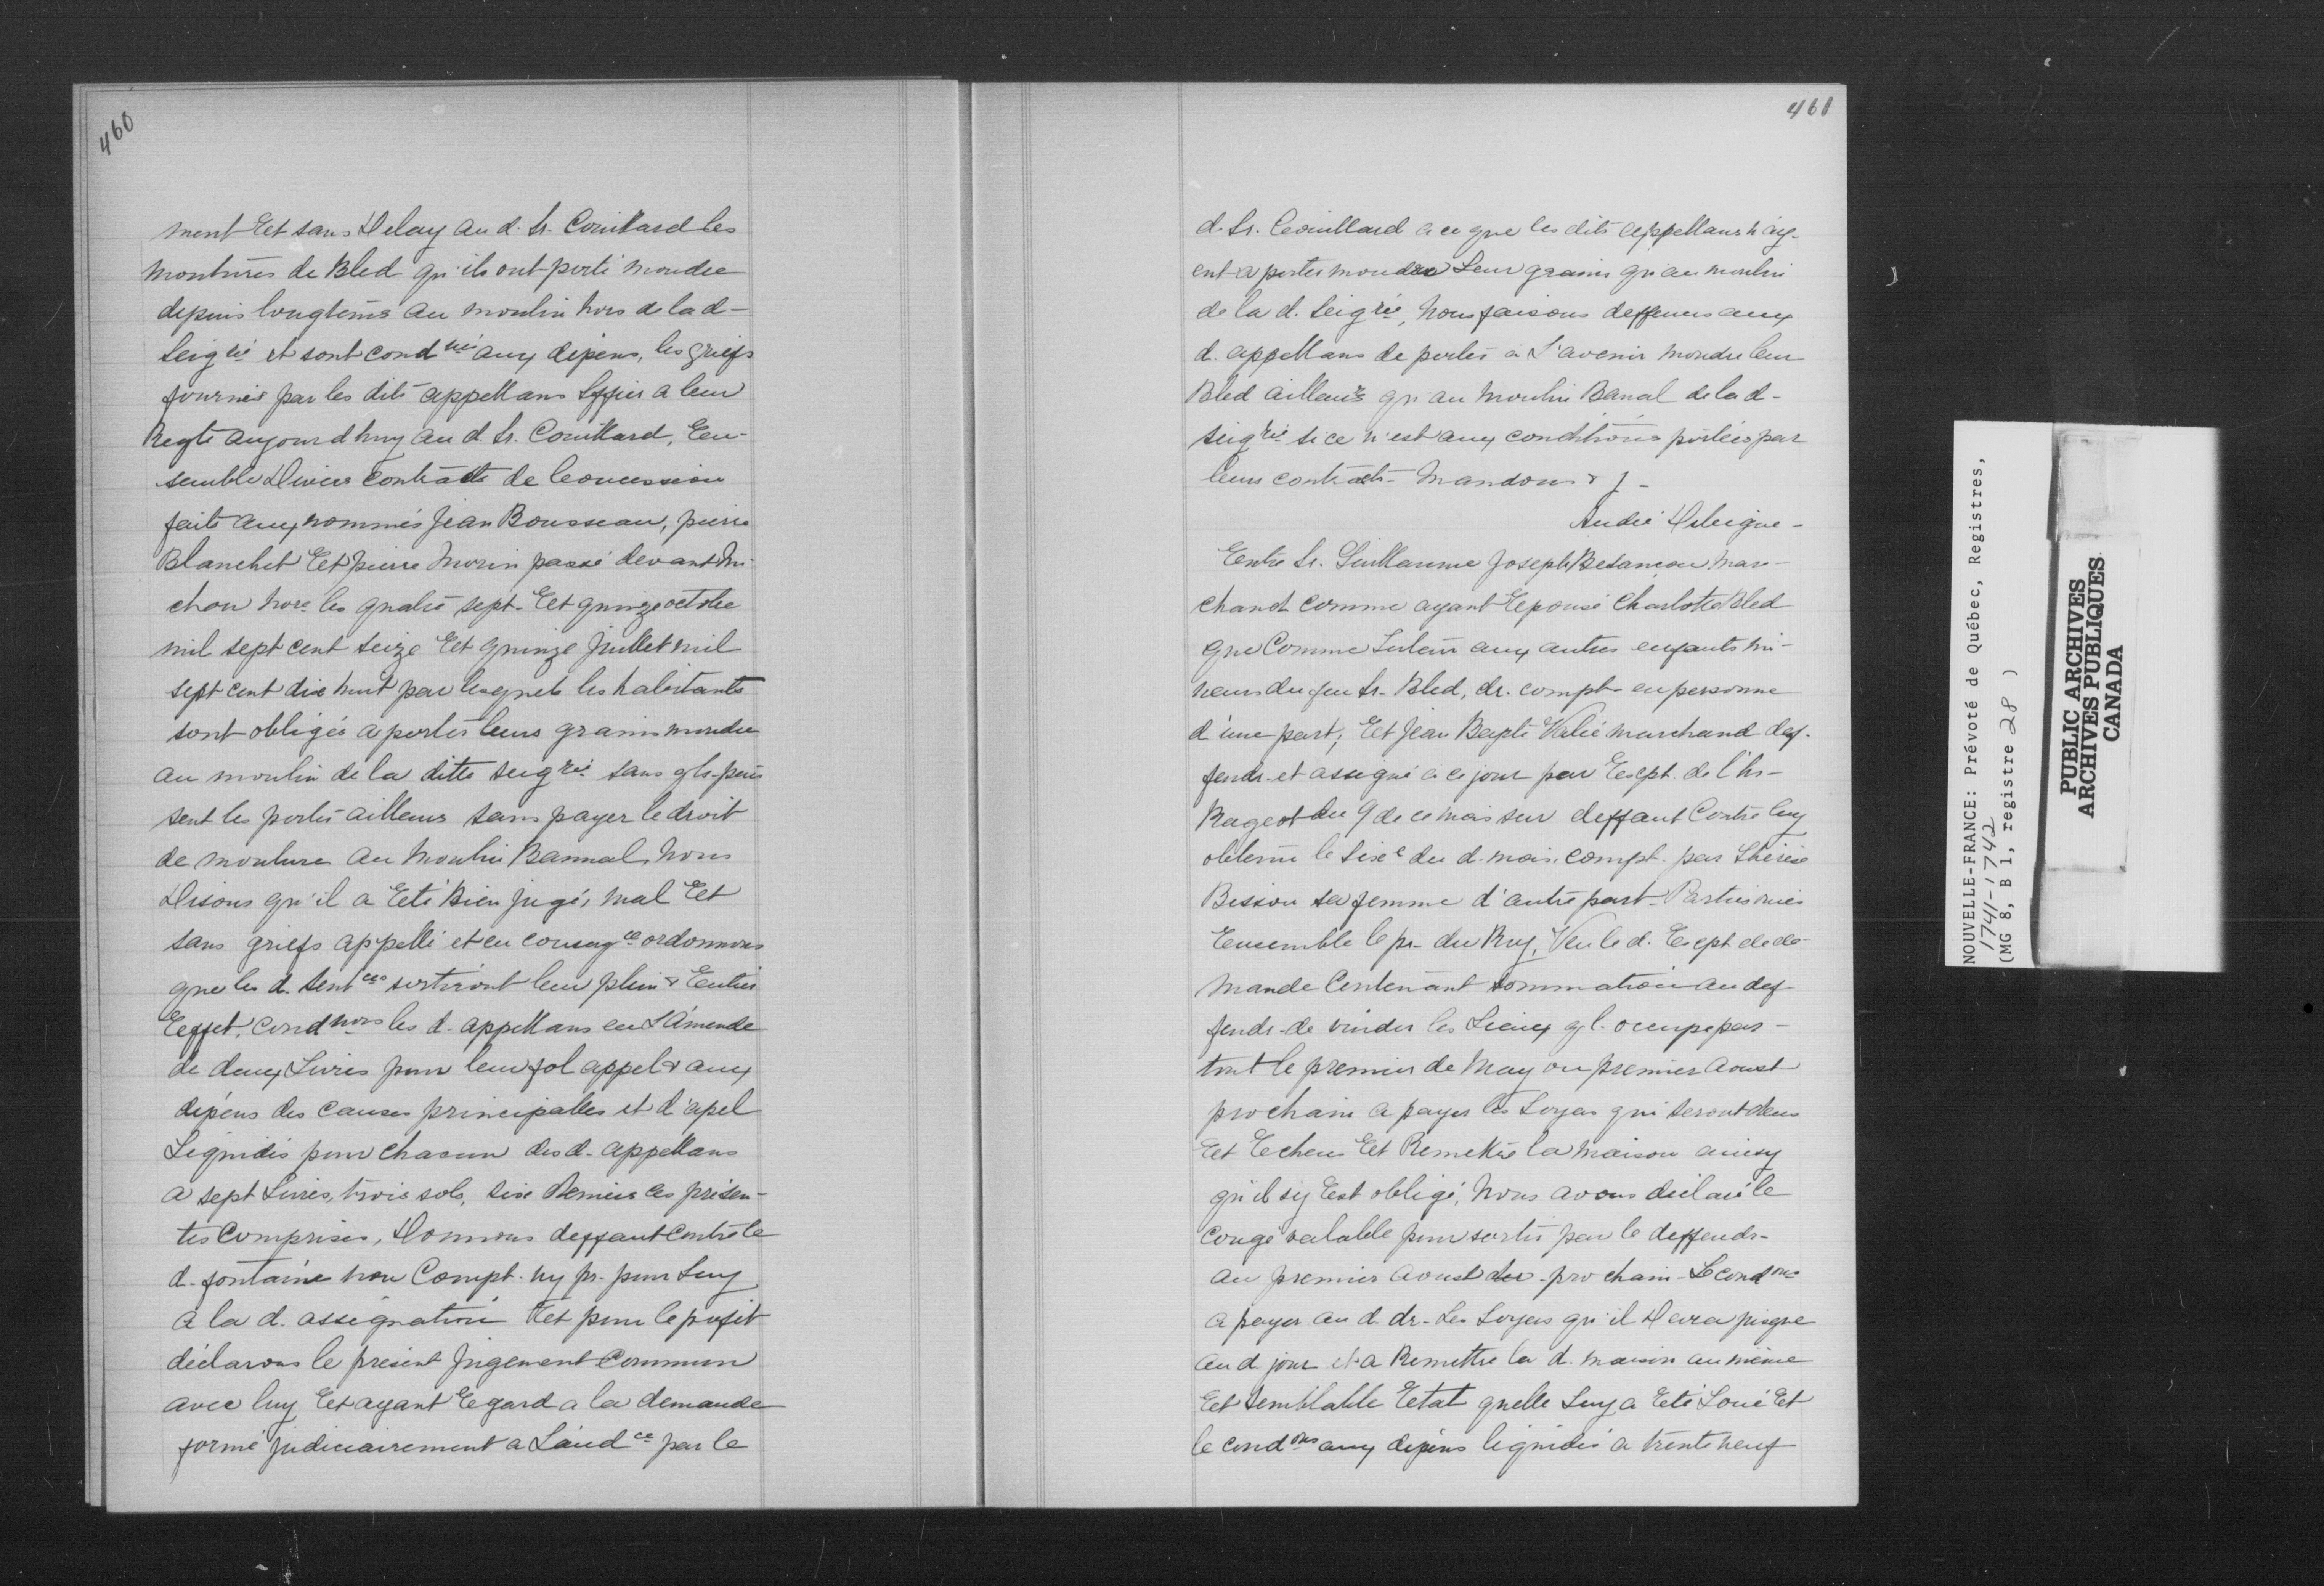 460
ment Et sans Delay au d. Sr. Couillard les
moutures de Bled qu'ils ont porté moudre
depuis longtems au moulin hors de la d-
Seigrie et sont condnés aux dépens, les griefs
fournis par les dits appellans Signés a leur
Reqte aujourdhuy au d. Sr. Couillard, En-
semble Divers contracts de Concession
faits aux nommés Jean Bousseau, pierre
Blanchet Et pierre Morin passé devant Mi-
chon nore les quatre sept. Et quinze octobre
mil sept cent seize Et quinze Juillet mil
sept cent dix huit par lesquels les habitants
sont obligés a porter leurs grains moudre
au moulin de la ditte seigrie sans qls puis
sent les porter ailleurs sans payer le droit
de mouture au Moulin Bannal, Nous
Disons qu'il a Eté Bien jugé, mal Et
sans griefs appellé et en conseqce ordonnons
que les d. Sentces sortiront leur plein & Entier
Eeffet, condnons les d. appellans en L'Amende
de deux Livres pour leur fol appel & aux
dépens des causes principalles et d'apel
Liquidés pour chacun des d. appellans
a sept Livres, trois sols, six deniers les présen-
tes comprises, Donnons deffaut contre le
d. fontaine non Compt. ny pr. pour Luy
a la d. assignation Et pour le profit
déclarons le présent Jugement Commun
avec luy Et ayant Egard a la demande
formé judiciairement a Laudce par le
461
d. Sr. Couillard a ce que les dits appellans n'ay-
ent a porter moudre Leur grains qu'au moulin
de la d. Seigrie, Nous faisons deffenses aux
d. appellans de porter a L'avenir moudre leur
Bled ailleurs qu'au Moulin Banal de la d-
seigrie si ce n'est aux conditions portées par
leurs contracts - Mandons & J -
André Deleigne -
Entre Sr. Guillaume Joseph Besançon mar-
chand comme ayant Epousé Charlotte Bled
que Comme Tuteur aux autres enfants mi-
neurs du feu Sr. Bled, dr. compt- en personne
d'une part, Et Jean Bapte Valié marchand def-
fendr- et assigné a ce jour par Exept. de l'hr-
Rageot du 9 de ce mois sur deffaut Contre luy
obtenu le sixe du d. mois, compt. par Thérèse
Bisson sa femme d'autre part - Parties ouies
Ensemble le pr- du Roy, Veu le d. Exept de de-
mande Contenant sommation au def-
fendr- de vuider les Lieux ql. occupe par-
tout le premier de May ou premier aoust
prochain a payer les Loyers qui seront deus
Et Echeu Et Remettre la maison ainsy
qu'il s'y Est obligé, Nous avons déclaré le
congé valable pour sortir par le deffendr-
au premier aoust prochain - Le condons
a payer au d. dr- Les Loyers qu'il Devra jusque
au d. jour et a Remettre la d. maison au même
Et Semblable Etat quelle Luy a Eté Loué Et
le condons aux dépens liquidés a trente neuf
NOUVELLE-FRANCE: Prévoté de Québec, Registres,
1741-1742
(MG 8, B 1, registre 28 )
PUBLIC ARCHIVES
ARCHIVES PUBLIQUES
CANADA